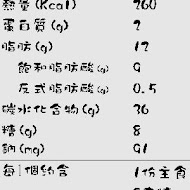 熱量(Kcal) 260
蛋白質(g) 2
脂肪(g) 12
飽和脂肪酸(g) 9
反式脂肪酸(g) 0.5
碳水化合物(g) 36
糖(g) 8
鈉(mg) 91
每1個約含 1份主食